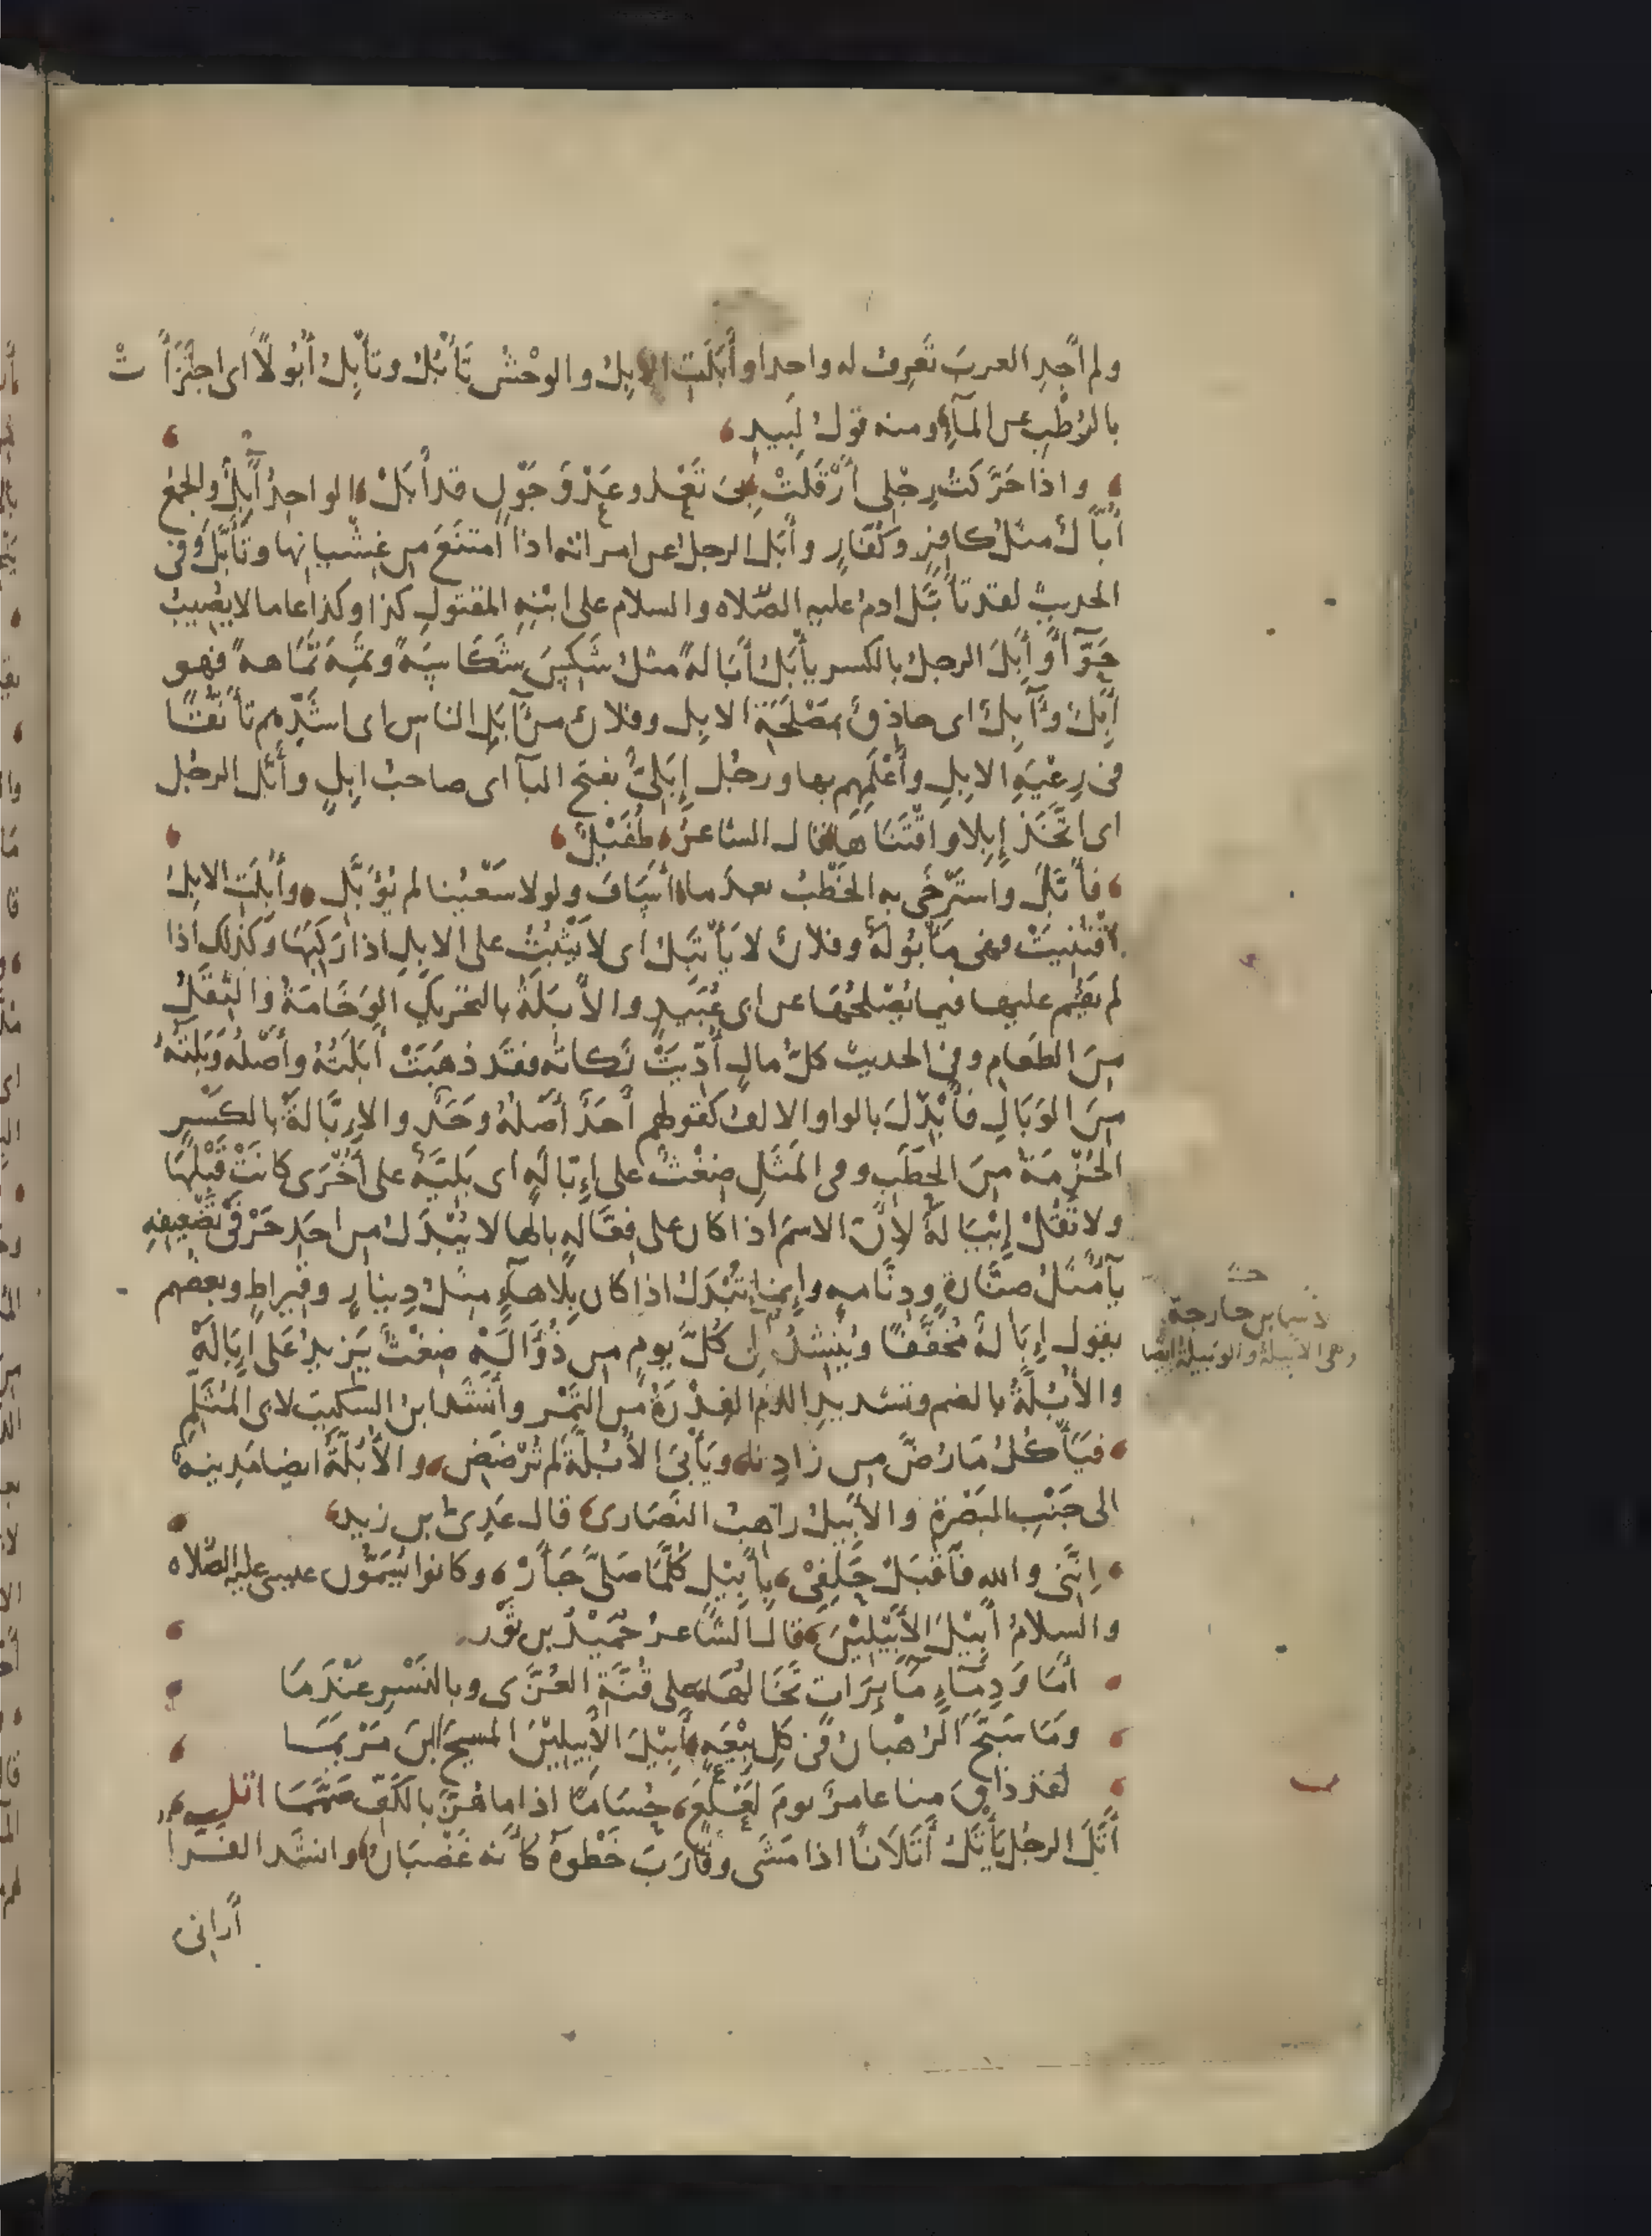 ولم أجِدِ العربَ تَعرِفُ له واحدا وأَبَلَتِ الإبلُ والوحْشُ تَأْبُلُ وتأبِلُ أُبُولًا اى اجتَزَأَتْ
بالرُطْبِ عن المآءِ ومنه قولُ لَبيدٍ
واذا حَرَّكتُ رِجْلى أَرْقَلَتْ بىَ تَعْدو عَدْوَ جَوْنٍ قد أَبَلْ الواحدُ آبِلٌ والجمعُ
أُبَّالٌ مثلُ كافِرٍ وكُفَّارٍ وأَبَلَ الرجلُ عن امراته اذا امتَنَعَ من غِشْيانِها وتَأَبَّلَ وفى
الحديث لقد تأَبَّلَ ادمُ عليه الصّلاه والسلام على ابْنِهِ المقتولِ كذا وكذا عاما لا يُصِيبُ
حَوّآءَ وأَبِلَ الرجلُ بالكسر يأْبَلُ أَبَالَةً مثلُ شَكِسَ شَكَاسَةً وتَمِهَ تَمَاهةً فهو
أَبِلٌ وآبِلٌ اى حاذِقٌ بمَصْلَحَةِ الابِلِ وفلانٌ من آبَلِ الناسِ اى اشَدِّهم تأَنُّقًا
فى رِعْيَةِ الابِلِ وأَعْلَمِهِم بها ورجُل إِبَلِىٌّ بفتح البآ اى صاحبُ ابِلٍ وأَبَّلَ الرجُل
اى اتَّخَذَ إِبِلا واقْتَنَاهَا قال الشاعرُ طُفَيْلٌ
فأَبَّلَ واسْتَرْخَى به الخَطْبُ بعدَ ما أَسَافَ ولولا سَعْيُنا لم يُؤَبِّلِ وأُبِلَتِ الابلُ
اقْتُنِيَتْ فهى مأْبُولَةٌ وفلانٌ لا يَأْتَبِلُ اى لا يَثْبُتُ على الابِلِ اذا رَكِبَها وكذلك اذا
لم يَقُم عليها فيما يُصْلِحُهَا عن ابى عُبَيدٍ والأَبَلَةُ بالتحريك الوَخَامَةُ والثِّقَلُ
مِنَ الطعامِ وفى الحديث كلُّ مالٍ أُدِّيَتْ زَكاتُه فقد ذهَبَتْ أَبَلَتُهُ وأَصْلُه وَبَلَتُهُ
مِنَ الوَبَالِ فأُبْدِلَ بالواو الالفُ كقولهم أَحَدٌ أَصْلُهُ وَحَدٌ والإِبَّالَةُ بالكَسْرِ
الحُزْمَةُ مِنَ الحَطَبِ وفى المَثَلِ ضِغْثٌ على إِبَّالَةٍ اى بَلِيَّةٌ على أُخْرَى كانَتْ قَبْلَهَا
ولا تَقُلْ إِيْبَالَةٌ لأَنَّ الاسمَ اذا كان على فِعَّالَةٍ بالها لا يُبْدَلُ من احَدِ حَرْفَىْ تَضْعِيفِهِ
يآءٌ مثلُ صِنَّارةٍ ودِنَّامةٍ وإنما يُبْدَلُ اذا كان بِلا هآءٍ مثلُ دِينارٍ وقيراطٍ وبعضهم
يقول إِبَالَةٌ مُخَفَّفًا ويُنْشِدُ لى كُلَّ يومٍ من ذُؤَالَهْ ضِغْثٌ يَزيدُ عَلَى إِبَالَهْ
والأُبُلَّةُ بالضم وتشديدِ اللام الفِدْرَةُ من التَّمْر وأَنْشَد ابنُ السكيت لابى المُثَلَّم
فيَأْكُلُ مَا رُضَّ من زادِنا ويَأْبَى الأُبُلَّةَ لم تُرْضَضِ والأُبُلَّةُ ايضا مَدِينةٌ
الى جَنْبِ البَصْرةِ والأَبِيلُ راهبُ النَصَارى قال عَدِىُّ بن زيدٍ
إِنَّنى والله فآقْبَلْ حَلِفِىْ بِأَبِيْلٍ كُلَّما صَلَّى جَأَرْ وكانوا يُسَمُّون عيسى عليه الصّلاه
والسلامُ أَبِيْلَ الأَبِيْلِيْنَ قال الشاعرُ حُمَيْدُ بن ثَوْر
أَمَا وَدِمَآءٍ مَآئِرَاتٍ تَخَالُهَا على قُنَّةِ العُزَّى وبالنَسْرِ عَنْدَمَا
ومَا سَبَّحَ الرُهْبانُ فى كلِ بِيْعَةٍ أَبِيْلَ الأَبِيلِيْنَ المسيحَ ابنَ مَرْيَمَا
لقد ذاقَ منا عامرٌ يومَ لَعْلَعٍ حُسَامًا اذا ما هُزَّ بالكَفِّ صَمَّمَا اتل
أَتَلَ الرجُل يَأْتِلُ أَتَلَانًا اذا مَشَى وقَارَبَ خَطوهُ كأنه غَضْبَانُ وانشد الفرا
أرانى
وهى الابيلة والوبيلة ايضا